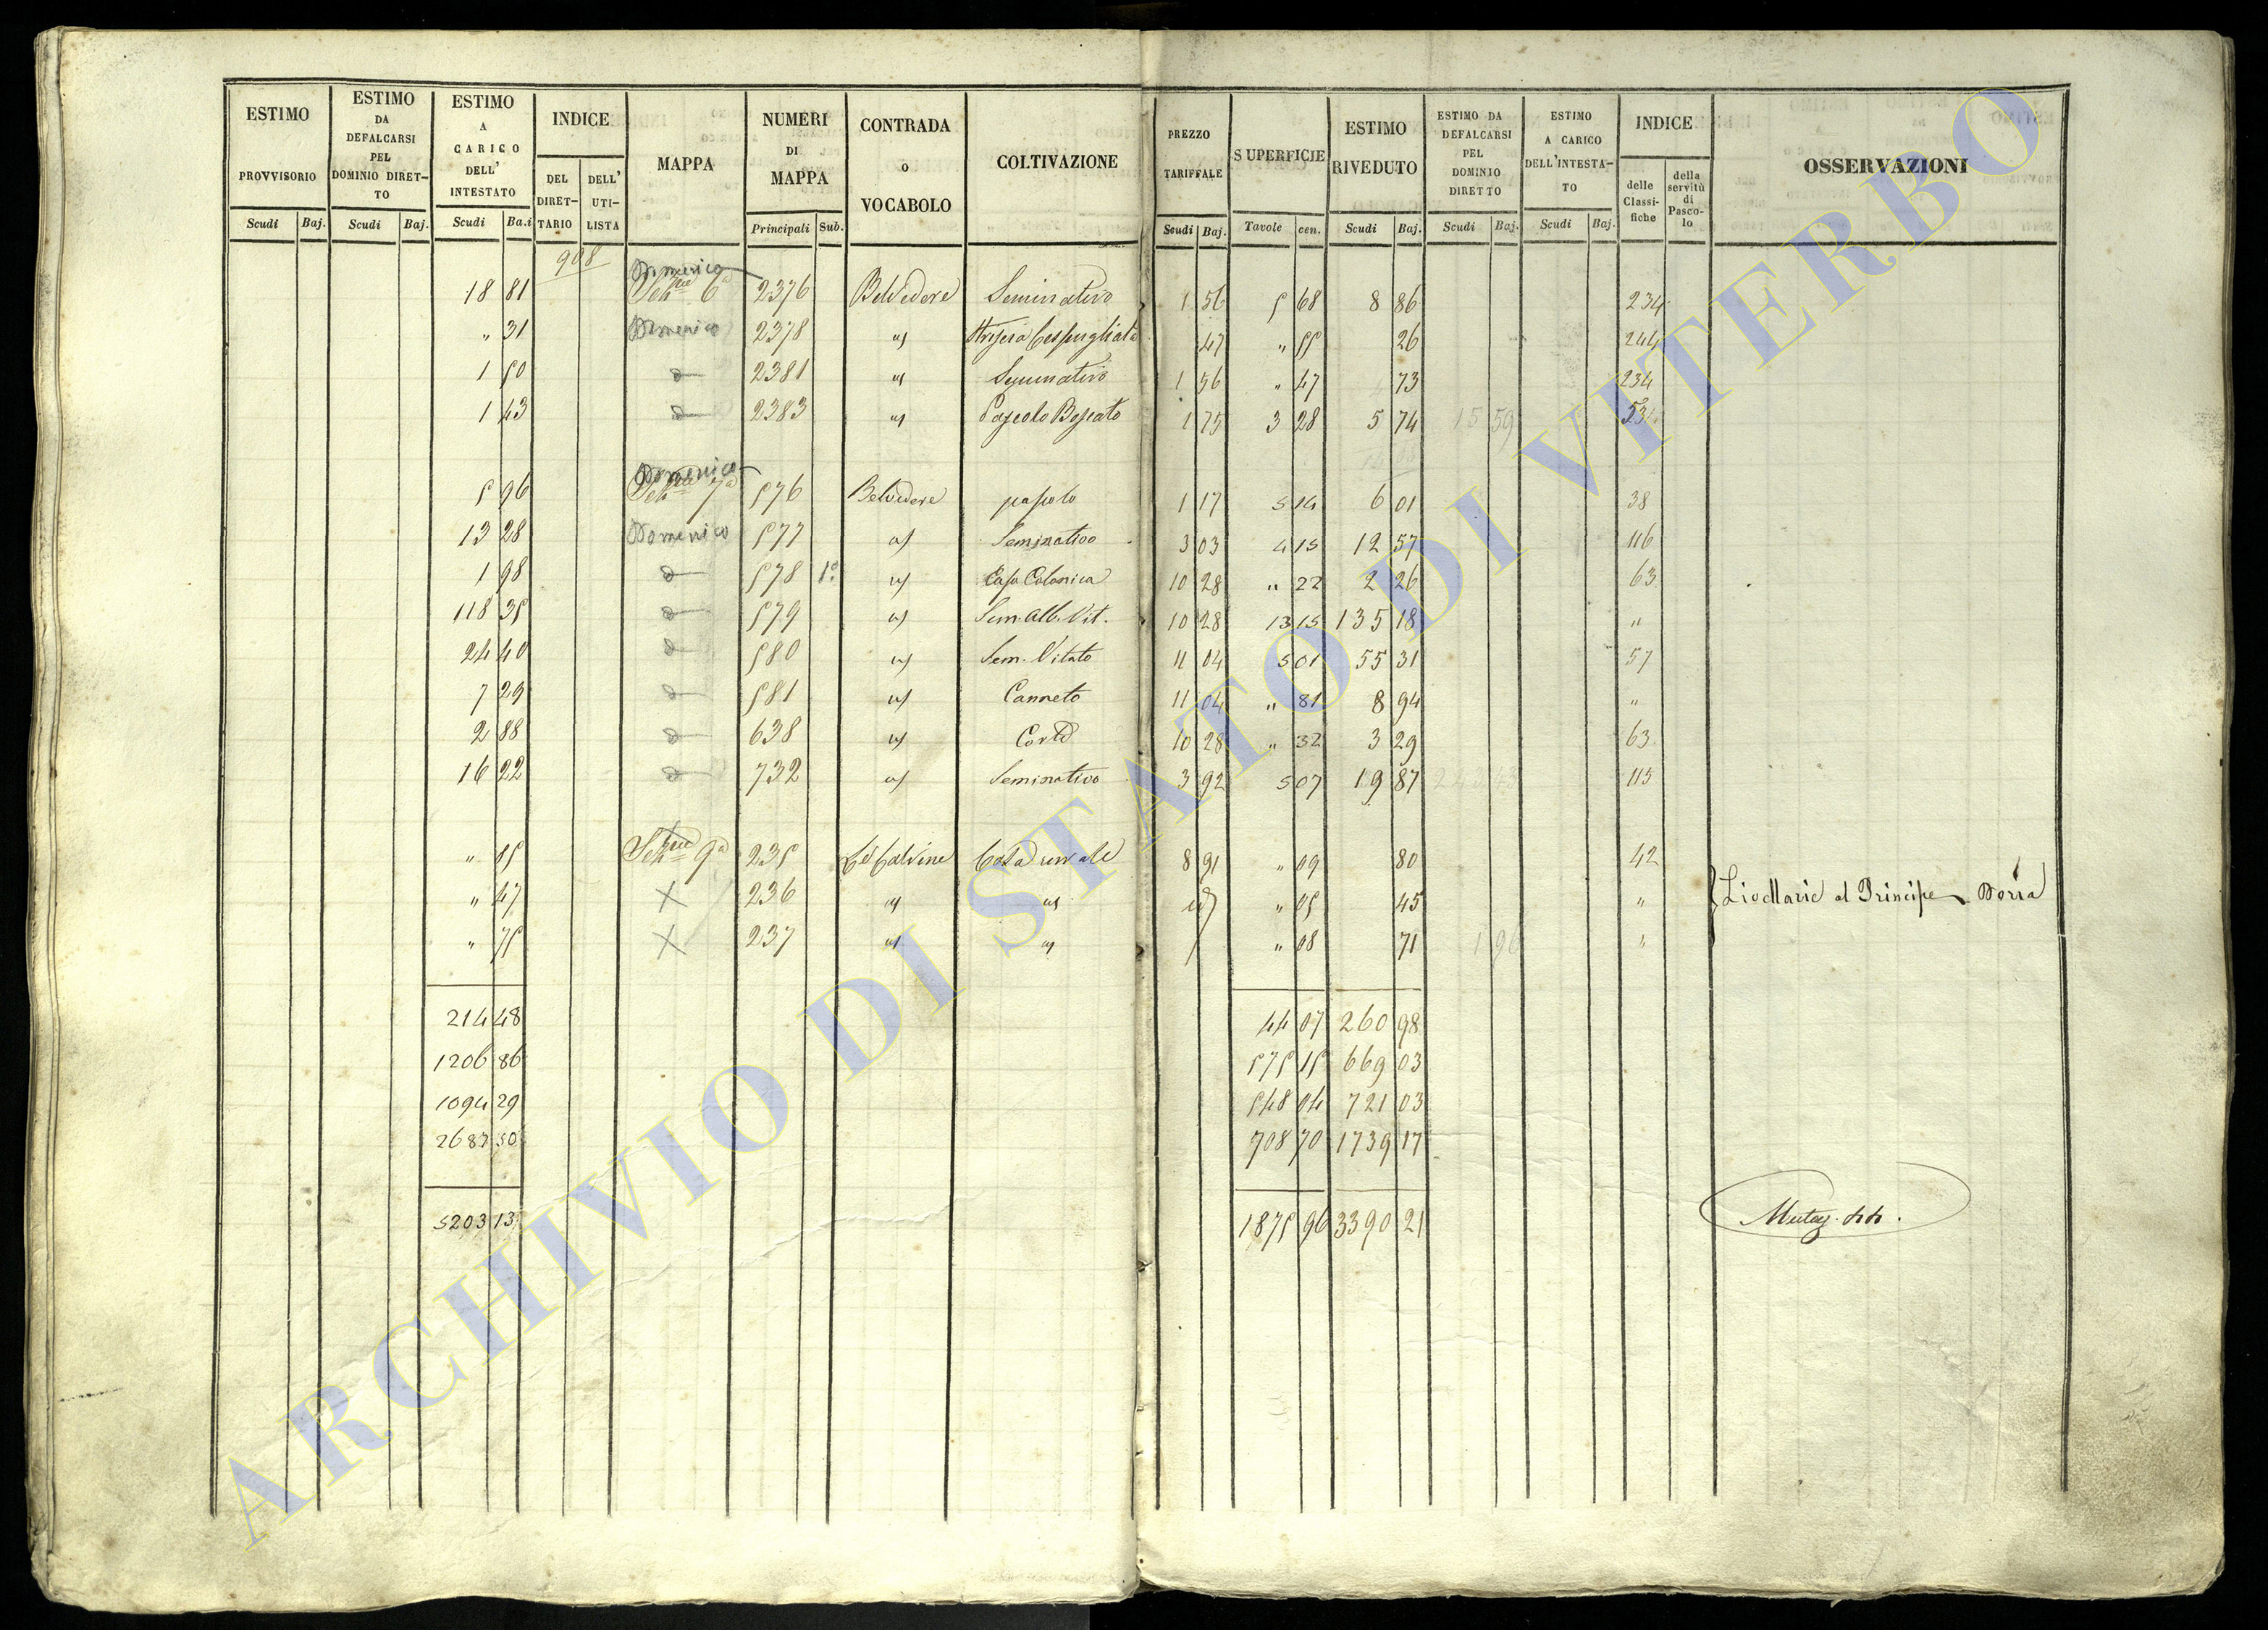 ESTIMO PROVVISORIO Scudi Baj.
ESTIMO DA DEFALCARSI PEL DOMINIO DIRETTO Scudi Baj.
ESTIMO A CARICO DELL' INTESTATO Scudi Ba.i
INDICE DEL DIRETTARIO DELL' UTILISTA
MAPPA
NUMERI DI MAPPA Principali Sub.
CONTRADA o VOCABOLO
COLTIVAZIONE
PREZZO TARIFFALE Scudi Baj.
SUPERFICIE Tavole cen.
ESTIMO RIVEDUTO Scudi Baj.
ESTIMO DA DEFALCARSI PEL DOMINIO DIRETTO Scudi Baj.
ESTIMO A CARICO DELL'INTESTATO Scudi Baj.
INDICE delle Classifiche della servitù di Pascolo
OSSERVAZIONI
908
Domenico
18 81 6ª 2376 Belvedere Seminativo 1 56 5 68 8 86 234
" 31 Domenico 2378 " Cespugliata 47 " 55 26 244
1 50 d 2381 " Seminativo 1 56 " 47 73 234
1 43 d 2383 " Pascolo Boscato 1 75 3 28 5 74 15 59
Domenico
5 96 7ª 576 Belvedere pascolo 1 17 5 14 6 01 38
13 28 Domenico 577 " Seminativo 3 03 4 15 12 57 116
1 98 d 578 1º " Casa Colonica 10 28 " 22 2 26 63
118 35 d 579 " Sem. Alb. Vit. 10 28 13 15 135 18 "
24 40 d 580 " Sem. Vitato 11 04 5 01 55 31 57
7 29 d 581 " Canneto 11 04 " 81 8 94 "
2 88 d 638 " Corte 10 28 " 32 3 29 63
16 22 d 732 " Seminativo 3 92 5 07 19 87 115
" 15 9ª 235 Casa rurale 8 91 " 09 80 42
" 47 X 236 " " " " 05 45 " Livellario al Principe Doria
" 75 X 237 " " " 08 71 1 96 "
214 48 44 07 260 98
1206 86 575 15 669 03
1094 29 548 04 721 03
2687 50 708 70 1739 17
5203 13 1875 96 3390 21
ARCHIVIO DI STATO DI VITERBO